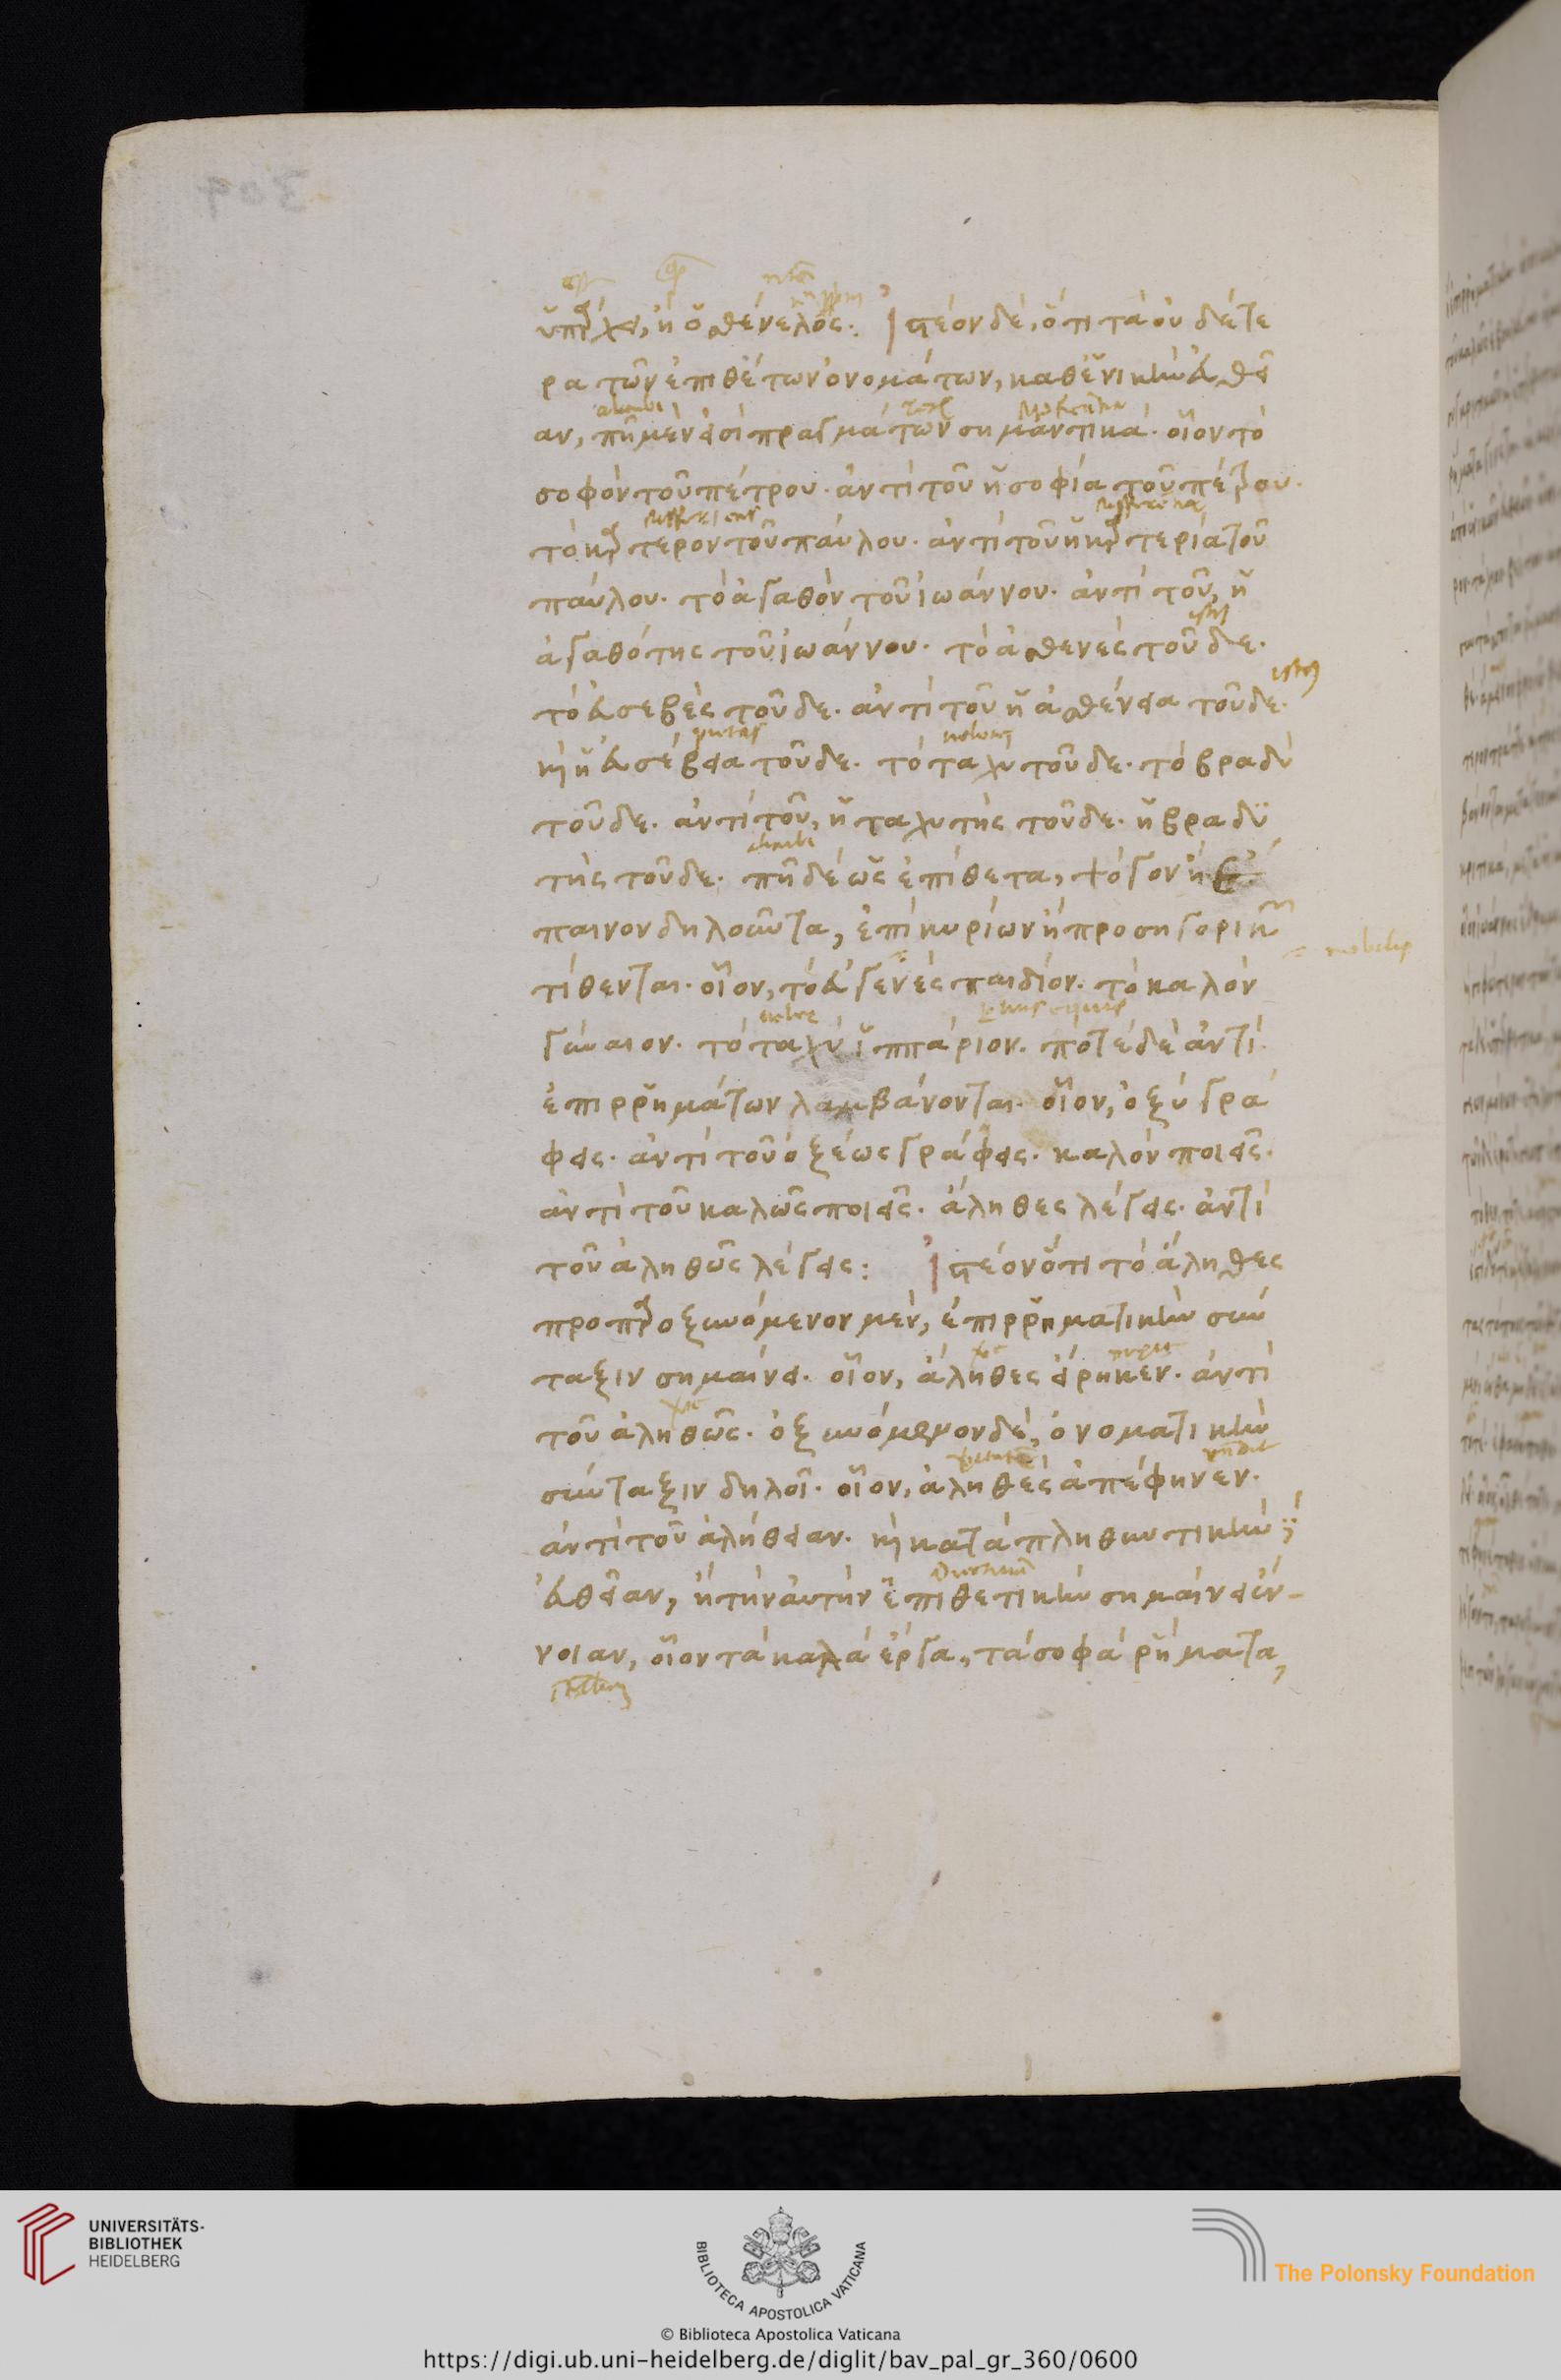 ὑπάρχει, ἢ ὁ σθένελος: Ἰστέον δὲ, ὅτι τὰ οὐδέτε
ρα τῶν ἐπιθέτων ὀνομάτων, καθ' ἑνικὴν εὐθεῖ
αν, πῆ μέν εἰσι πραγμάτων σημαντικά. οἷον τὸ
σοφὸν τοῦ πέτρου. ἀντὶ τοῦ ἡ σοφία τοῦ πέτρου.
τὸ καρτερὸν τοῦ παύλου. ἀντὶ τοῦ ἡ καρτερία τοῦ
παύλου. τὸ ἀγαθὸν τοῦ ἰωάννου. ἀντὶ τοῦ, ἡ
ἀγαθότης τοῦ ἰωάννου. τὸ ἀσθενὲς τοῦδε.
τὸ εὐσεβὲς τοῦδε. ἀντὶ τοῦ ἡ ἀσθένεια τοῦδε.
καὶ ἡ εὐσέβεια τοῦδε. τὸ ταχὺ τοῦδε. τὸ βραδὺ
τοῦδε. ἀντὶ τοῦ, ἡ ταχυτὴς τοῦδε. ἡ βραδυ
τὴς τοῦδε. πῆ δὲ ὡς ἐπίθετα, ψόγον ἢ ἔ
παινον δηλοῦντα, ἐπὶ κυρίων ἢ προσηγορικῶν
τίθενται. οἷον, τὸ εὐγενὲς παιδίον. τὸ καλὸν
γύναιον. τὸ ταχὺ ἱππάριον. ποτὲ δὲ ἀντὶ
ἐπιρρημάτων λαμβάνονται. οἷον, ὀξὺ γρά
φεις. ἀντὶ τοῦ ὀξέως γράφεις. καλὸν ποιεῖς.
ἀντὶ τοῦ καλῶς ποιεῖς. ἄληθες λέγεις. ἀντὶ
τοῦ ἀληθῶς λέγεις: Ἰστέον ὅτι τὸ ἄληθες
προπαροξυνόμενον μὲν, ἐπιρρηματικὴν σύν
ταξιν σημαίνει. οἷον, ἄληθες εἴρηκεν. ἀντὶ
τοῦ ἀληθῶς. ὀξυνόμενον δὲ, ὀνοματικὴν
σύνταξιν δηλοῖ. οἷον, ἀληθὲς ἀπέφηνεν.
ἀντὶ τοῦ ἀλήθειαν. καὶ κατὰ πληθυντικὴν
εὐθεῖαν, ἢ τὴν αὐτὴν ἐπιθετικὴν σημαίνει ἔν-
νοιαν, οἷον τὰ καλὰ ἔργα, τὰ σοφὰ ῥήματα,
UNIVERSITÄTS-
BIBLIOTHEK
HEIDELBERG
BIBLIOTECA APOSTOLICA VATICANA
The Polonsky Foundation
© Biblioteca Apostolica Vaticana
https://digi.ub.uni-heidelberg.de/diglit/bav_pal_gr_360/0600